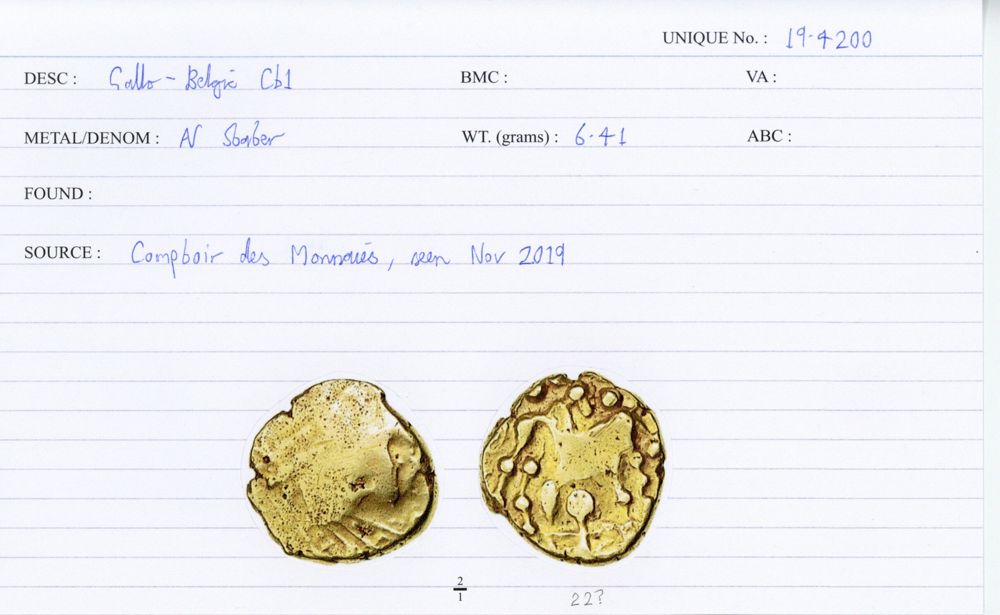 UNIQUE No. : 19·4200
DESC : Gallo-Belgic Cb1 BMC : VA :
METAL/DENOM : AV Stater WT. (grams) : 6·41 ABC :
FOUND :
SOURCE : Comptoir des Monnaies, seen Nov 2019
2
1
22?